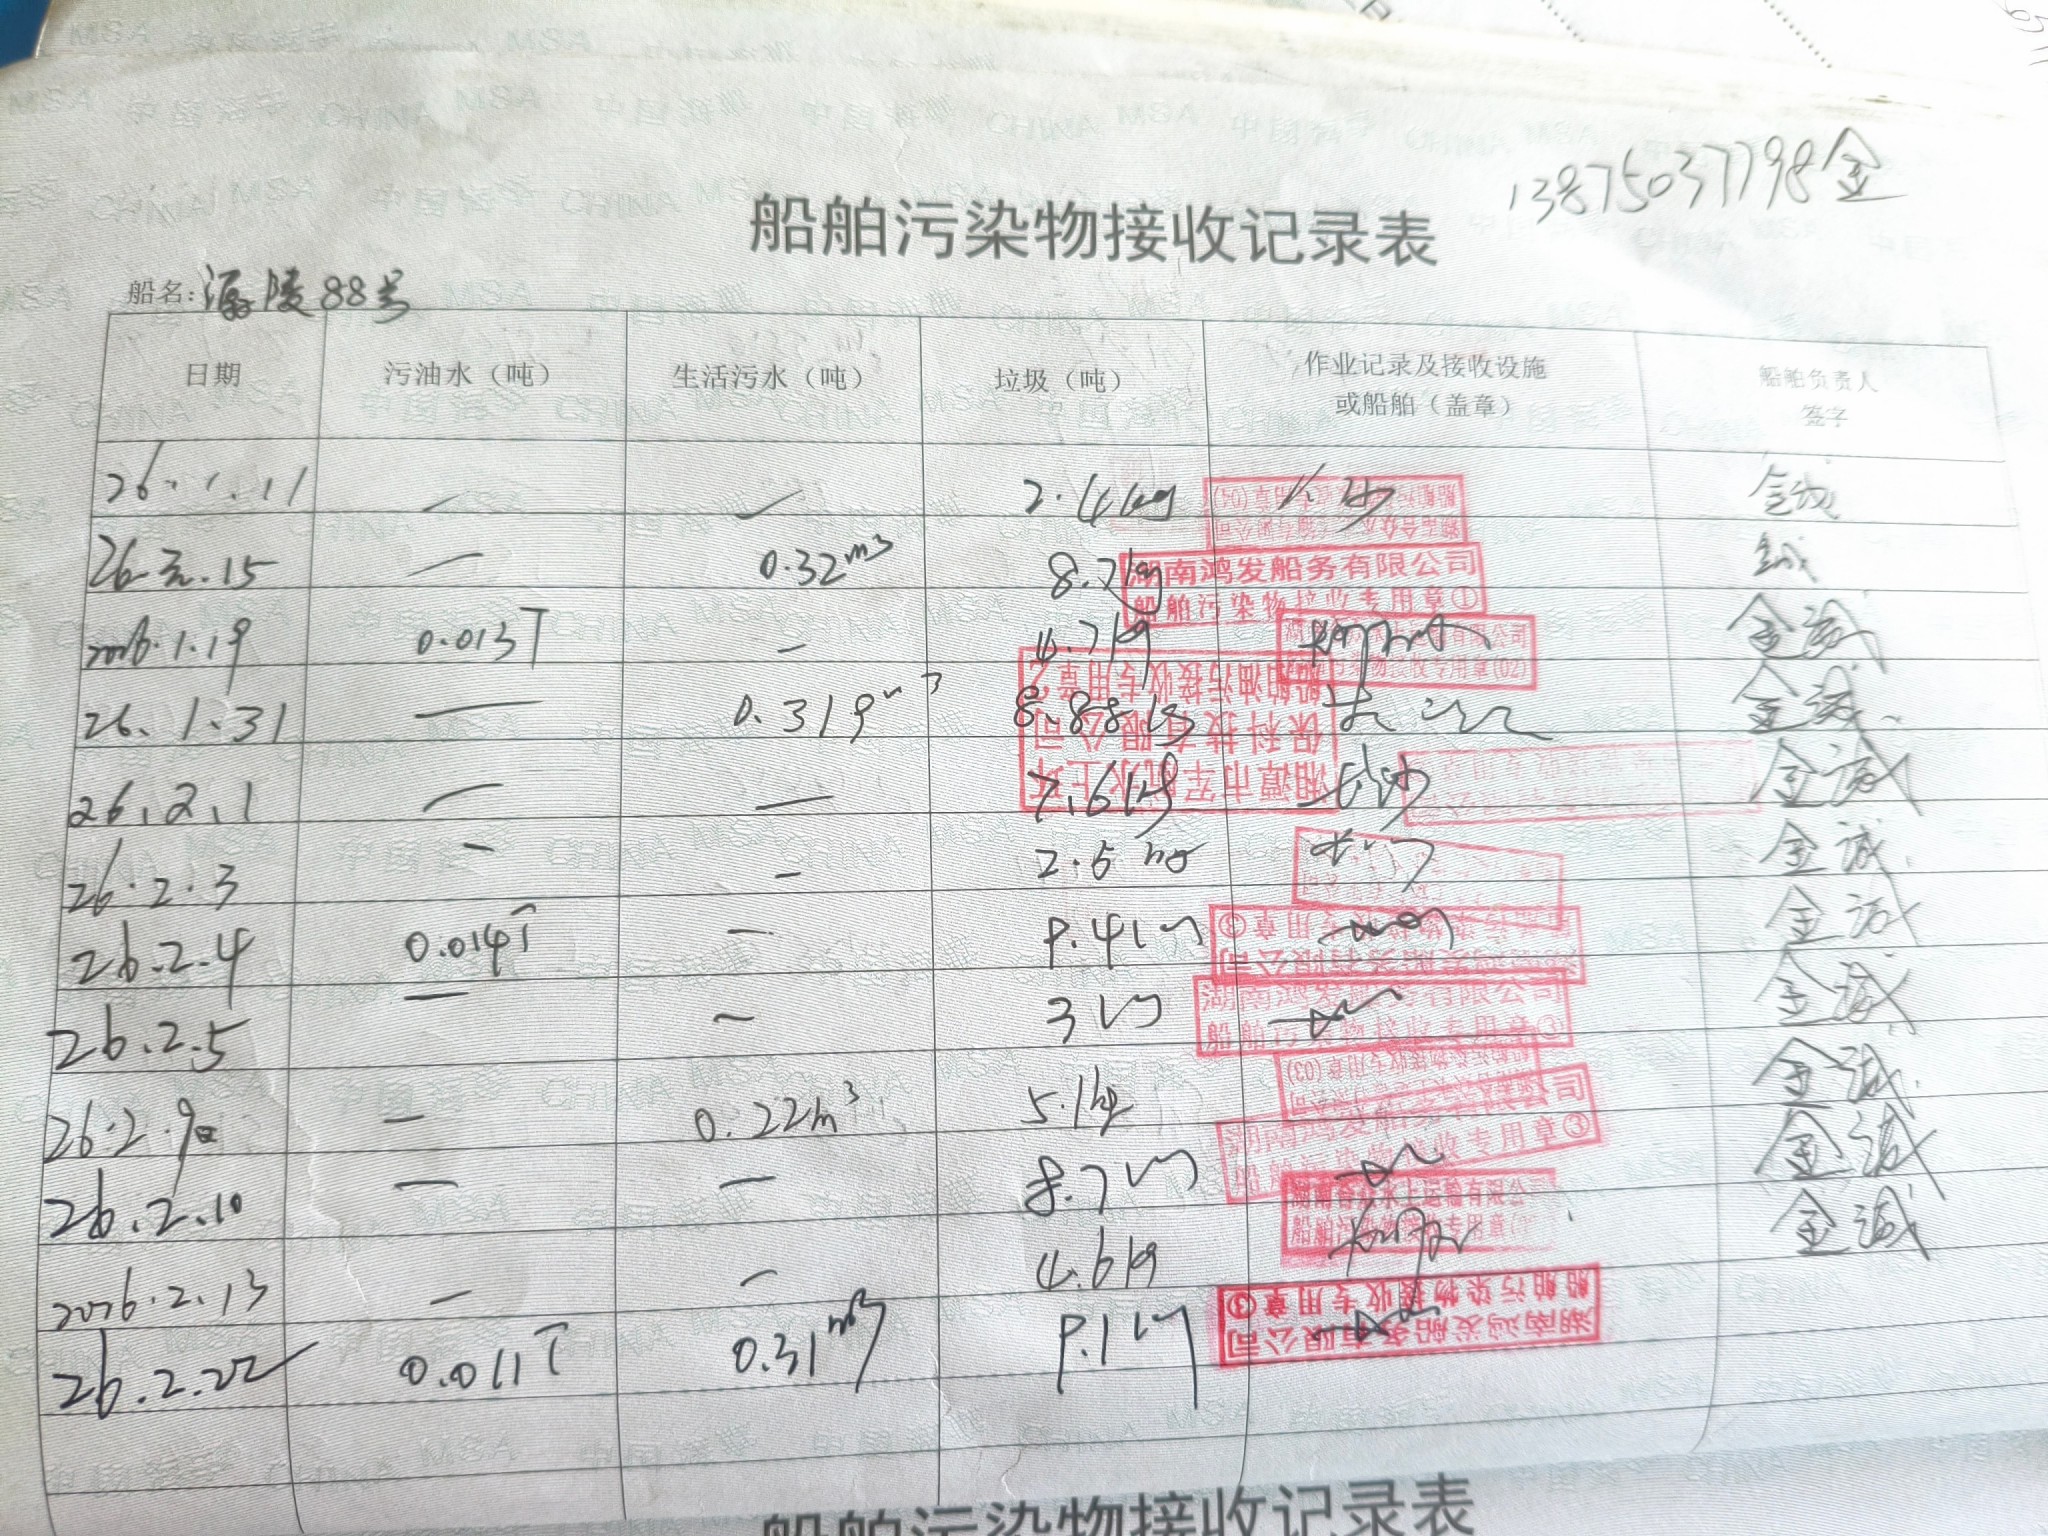 13875037798金
船舶污染物接收记录表
船名: 海陵88号
日期 污油水（吨） 生活污水（吨） 垃圾（吨） 作业记录及接收设施或船舶（盖章） 船舶负责人签字
26.1.11 — — 2.4kg 长沙 金诚
26.元.15 — 0.32m³ 8.7kg 湖南鸿发船务有限公司 船舶污染物接收专用章① 金诚
2026.1.19 0.013T — 4.7kg 金诚
26.1.31 — 0.319m³ 8.88kg 湘潭市军航水上环保科技有限公司 船舶油污接收专用章 金诚
26.2.1 — — 7.6kg 长沙 金诚
26.2.3 — — 2.5kg 金诚
26.2.4 0.014T — 9.4kg 金诚
26.2.5 — — 3kg 湖南鸿发船务有限公司 船舶污染物接收专用章③ 金诚
26.2.9日 — 0.22m³ 5.1kg 金诚
26.2.10 — — 8.7kg 湖南鸿发船务有限公司 船舶污染物接收专用章③ 金诚
2026.2.13 — — 4.6kg 金诚
26.2.22 0.011T 0.31m³ 9.1kg 湖南鸿发船务有限公司 船舶污染物接收专用章③
船舶污染物接收记录表